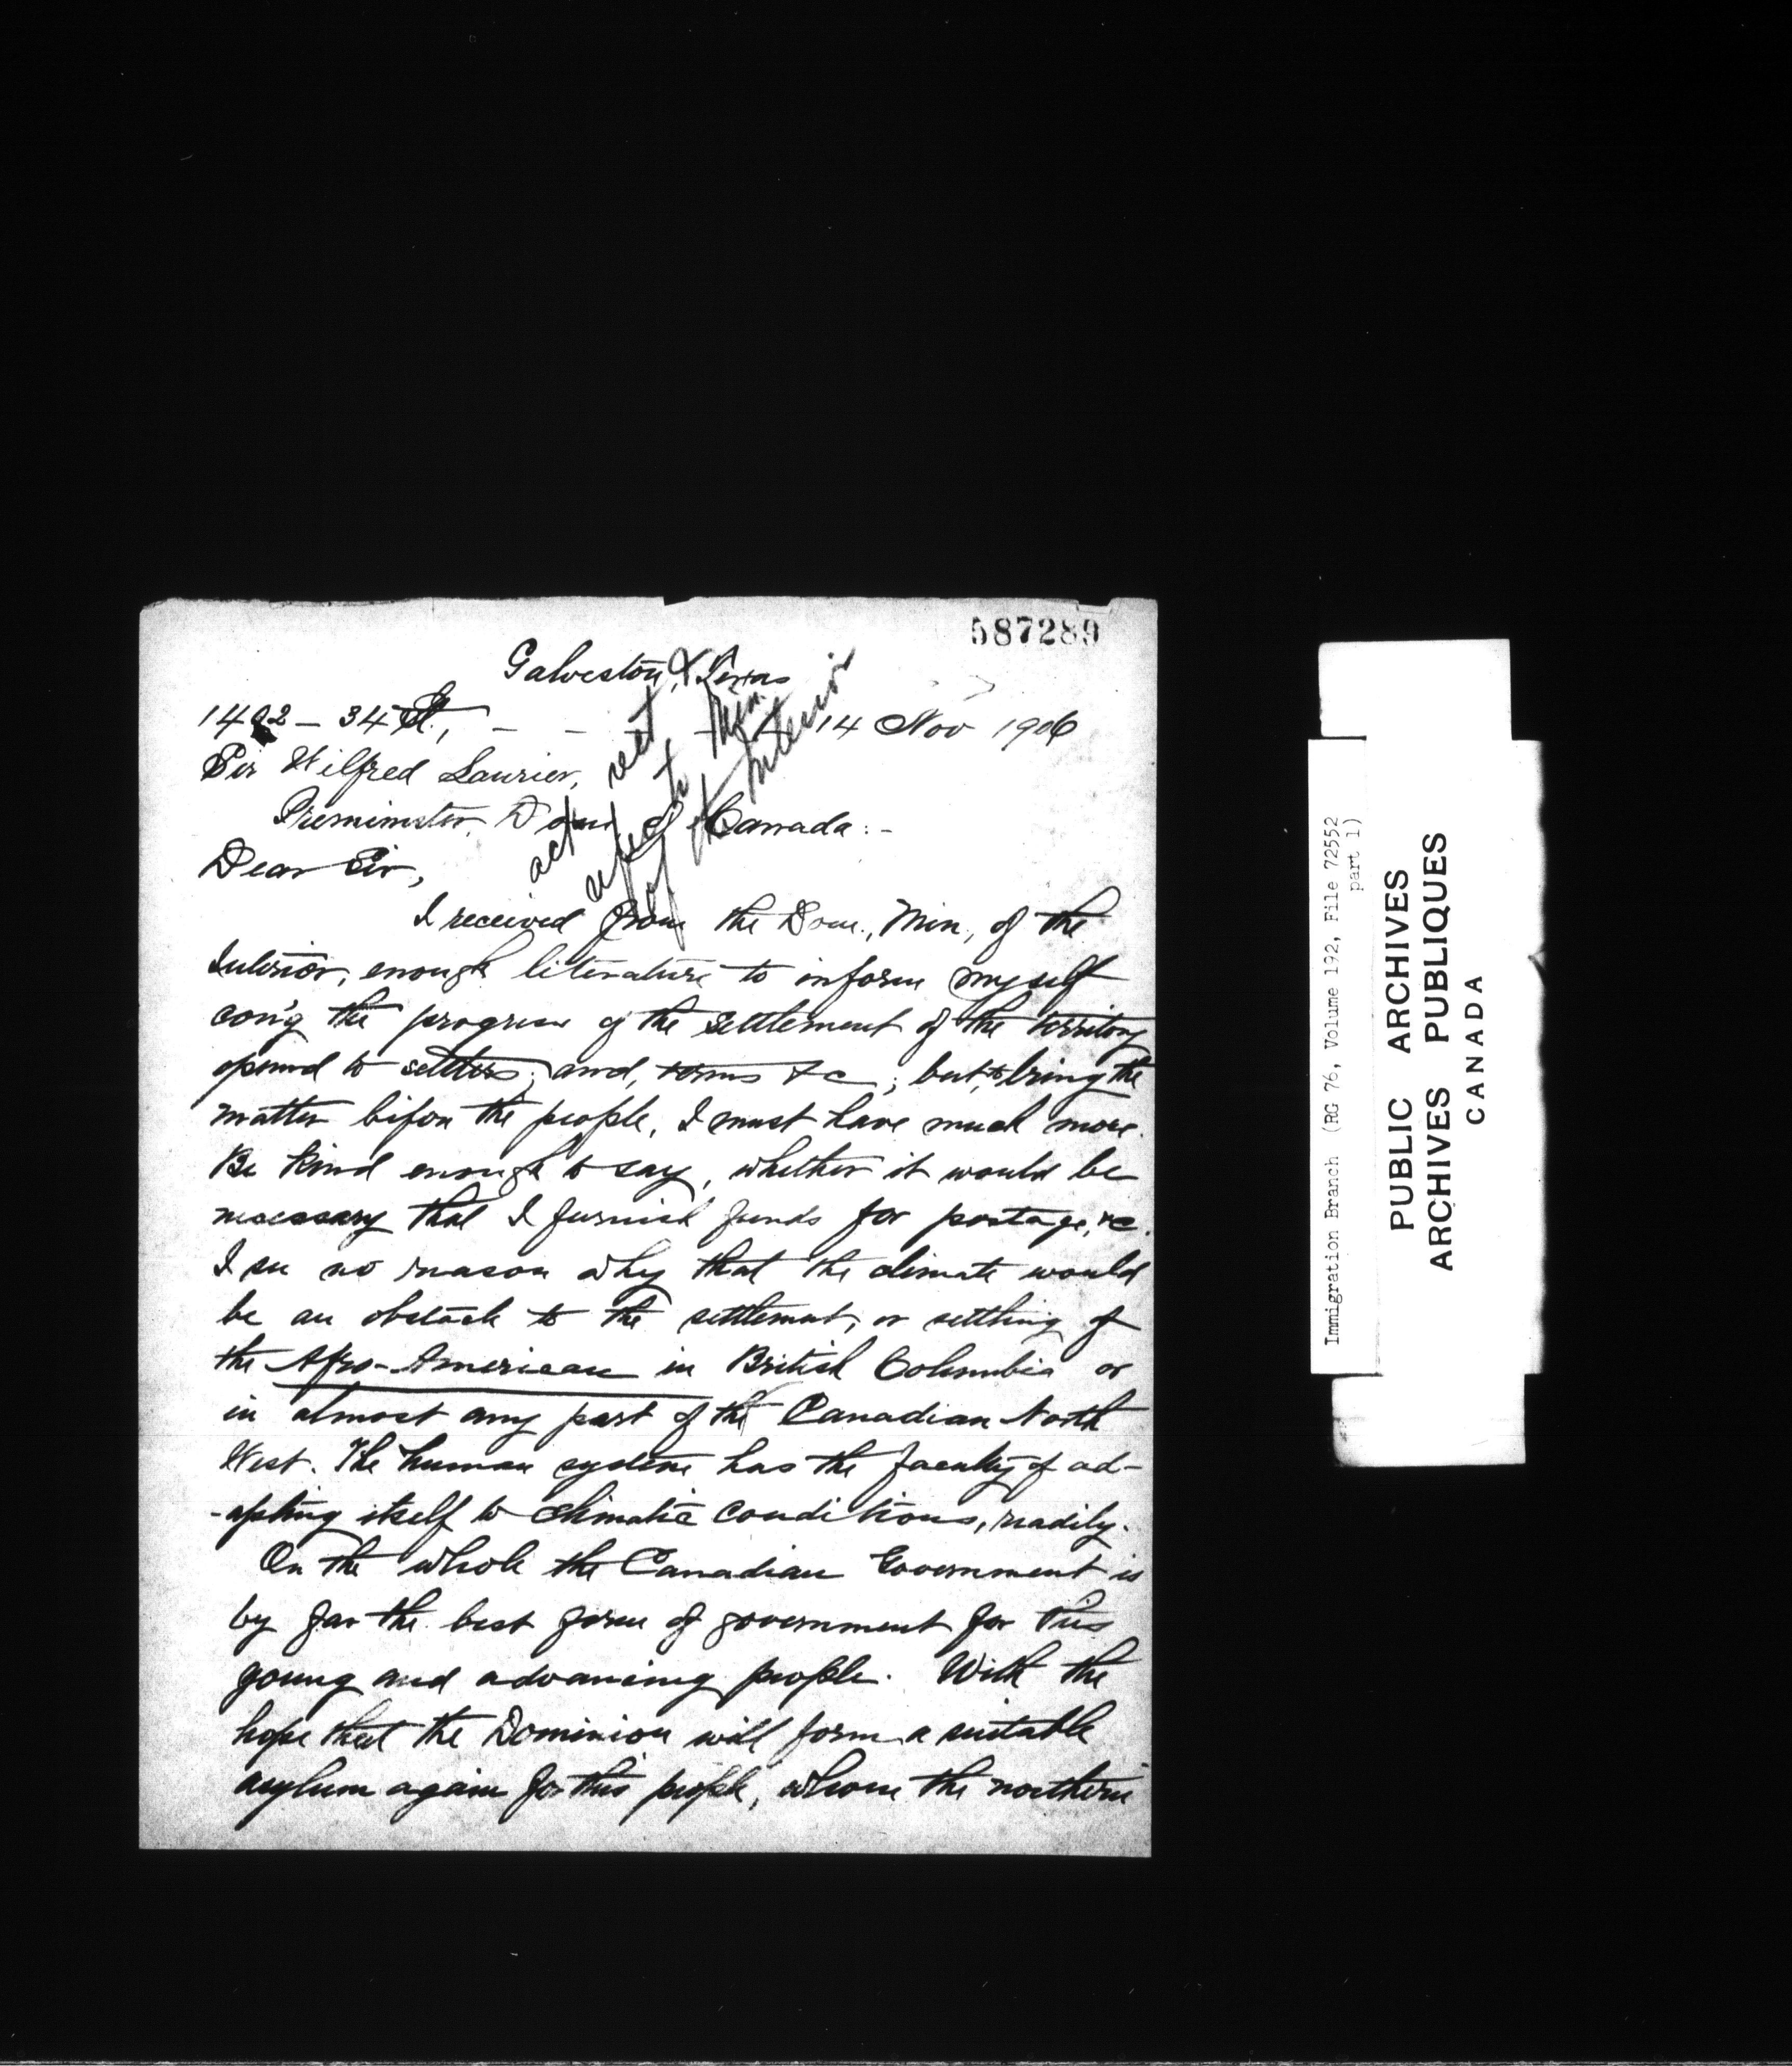 587289
Galveston, Texas
1402 - 34 St., - - - 14 Nov 1906
Sir Wilfred Laurier,
Premimster, Dom of Canada:-
Dear Sir,
ack rect &
refed to Min.
of the Interior
I received from the Dom., Min., of the
Interior, enough literature to inform myself
con'g the progress of the settlement of the territory
opened to settlers; and, terms &c; but, to bring the
matter before the people, I must have much more.
Be kind enough to say, whether it would be
necessary that I furnish funds for postage, &c.
I see no reason why that the climate would
be an obstacle to the settlement, or settling of
the Afro-American in British Columbia or
in almost any part of the Canadian North
West. The human system has the faculty of ad-
-apting itself to climatic conditions, readily.
On the whole the Canadian Government is
by far the best form of government for this
young and advancing people. With the
hope that the Dominion will form a suitable
asylum again for this people, whom the northern
Immigration Branch (RG 76, Volume 192, File 72552
part 1)
PUBLIC ARCHIVES
ARCHIVES PUBLIQUES
CANADA